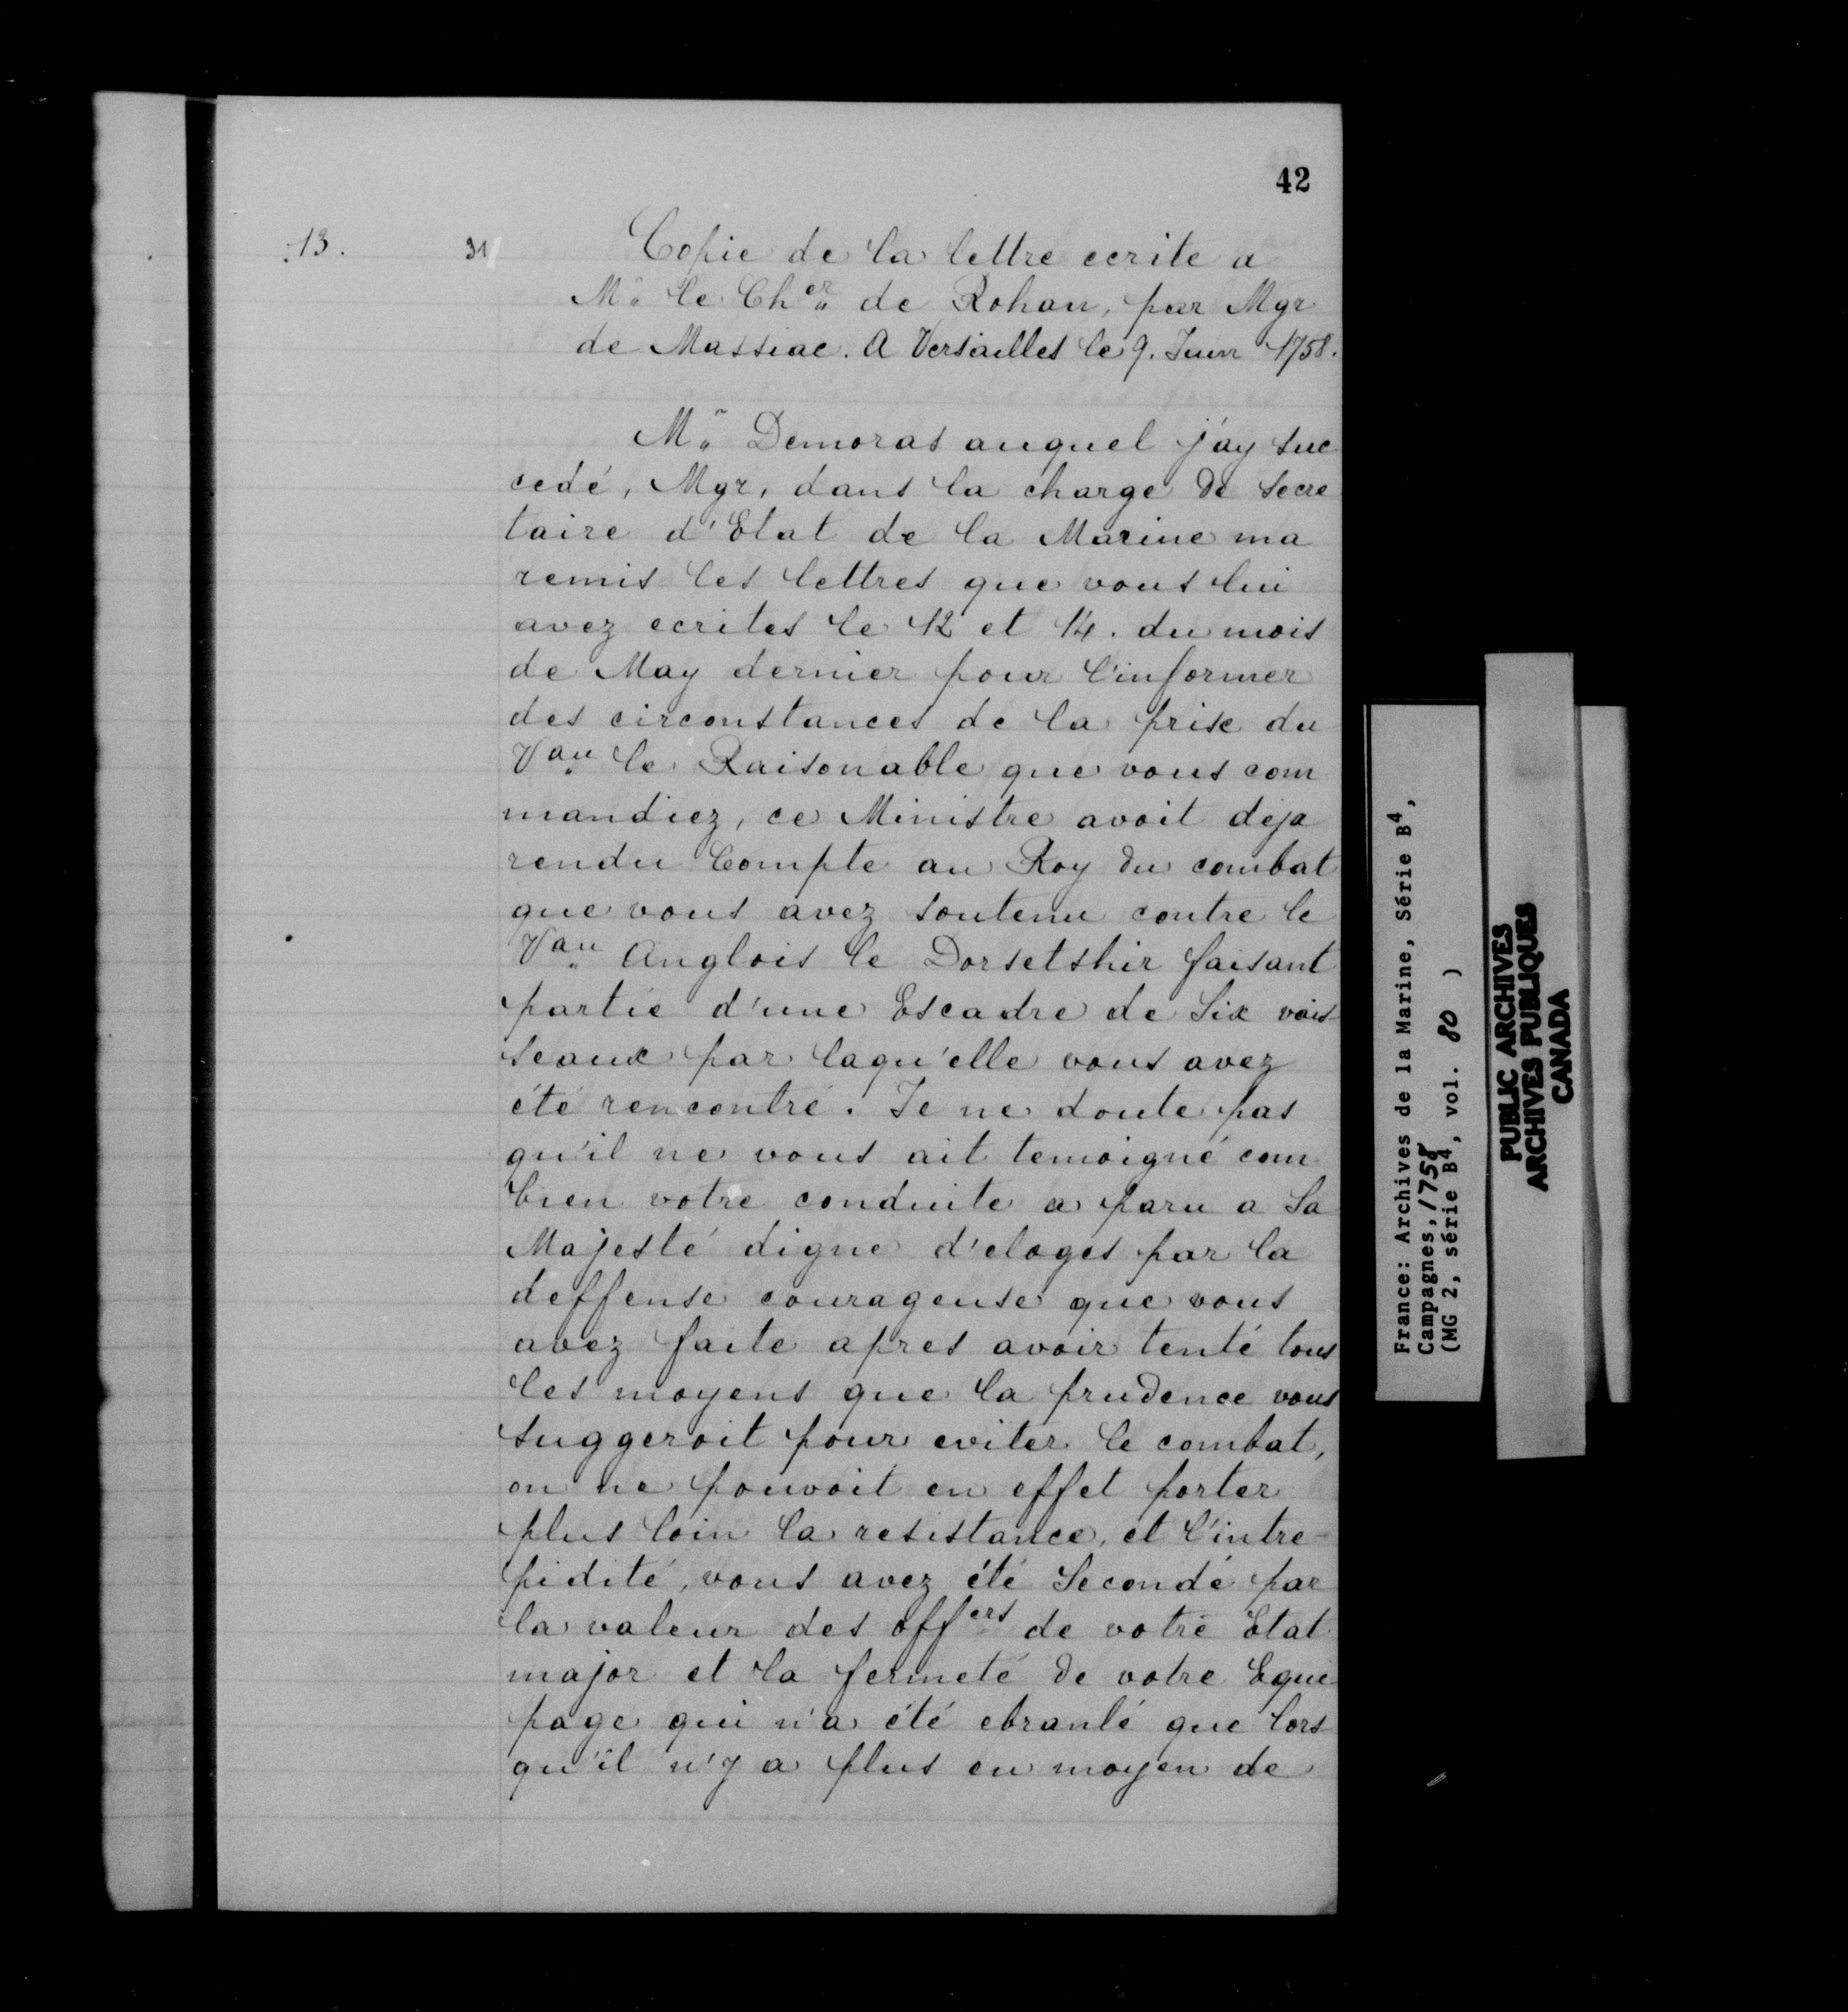 42
13.
31
Copie de la lettre ecrite a
Mr. le Cher. de Rohan, par Mgr
de Massiac. A Versailles le 9. Juin 1758.
Mr. Demoras auquel j'ay suc
cedé, Mgr, dans la charge de Secre
taire d'Etat de la Marine ma
remis les lettres que vous lui
avez ecrites le 12 et 14. du mois
de May dernier pour l'informer
des circonstances de la prise du
Vau. le Raisonable que vous com
mandiez, ce Ministre avoit deja
rendu Compte au Roy du combat
que vous avez soutenu contre le
Vau. Anglois le Dorsetshir faisant
partie d'une Escadre de Six vais
seaux par laqu'elle vous avez
été rencontré. Je ne doute pas
qu'il ne vous ait temoigné com-
bien votre conduite a paru a Sa
Majesté digne d'eloges par la
deffense courageuse que vous
avez faite apres avoir tenté tous
les moyens que la prudence vous
suggeroit pour eviter le combat,
on ne pouvoit en effet porter
plus loin la resistance, et l'intre-
pidité, vous avez été Secondé par
la valeur des offers de votre Etat
major et la fermeté de votre Equi
page qui n'a été ebranlé que lors
qu'il n'y a plus eu moyen de
France: Archives de la Marine, Série B4,
Campagnes, 1758
(MG 2, série B4, vol. 80 )
PUBLIC ARCHIVES
ARCHIVES PUBLIQUES
CANADA